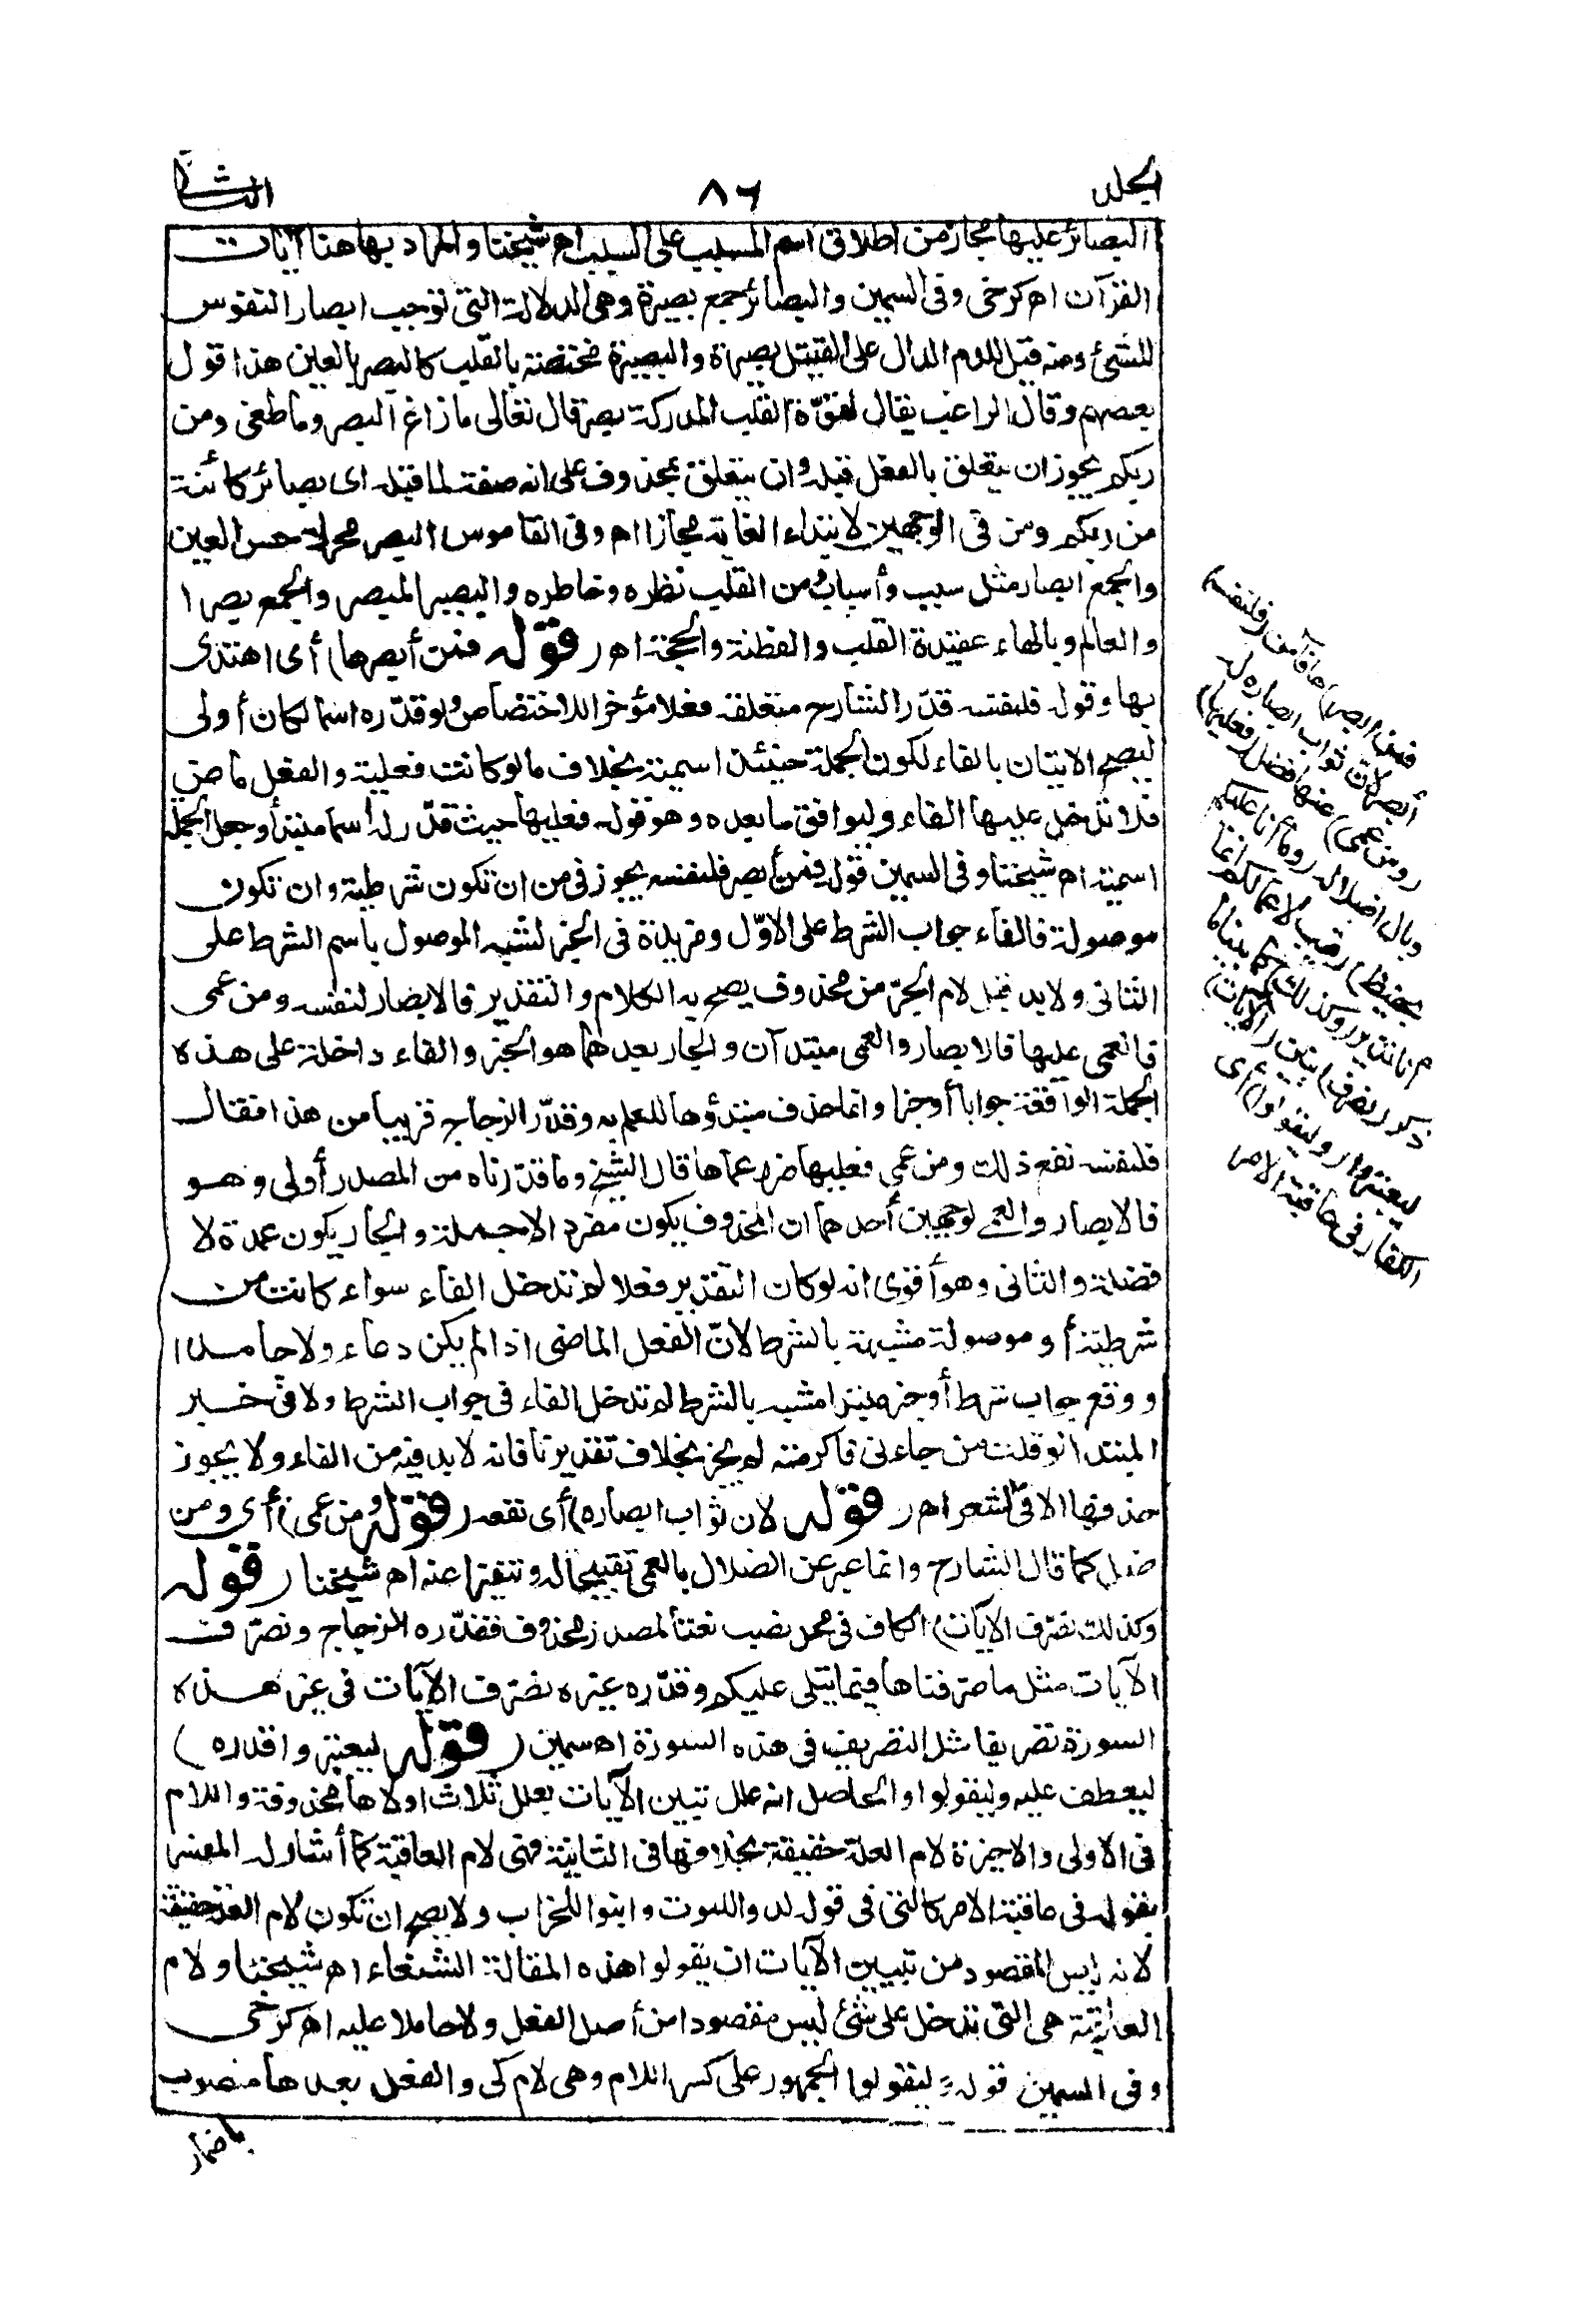 الجلد
٨٦
الثانى
البصائر عليها مجاز من اطلاق اسم المسبب على السبب اه شيخنا والمراد بها هنا آيات
القرآن اه كرخى وفى السمين والبصائر جمع بصيرة وهى الدلالة التى توجب ابصار النفوس
للشئ ومنه قيل للدم الدال على القتيل بصيرة والبصيرة مختصة بالقلب كالبصر بالعين هذا قول
بعضهم وقال الراغب يقال لقوّة القلب المدركة بصيرة قال تعالى ما زاغ البصر وما طغى ومن
ربكم يجوز ان يتعلق بالفعل قبله وان يتعلق بمحذوف على انه صفة لما قبله اى بصائر كائنة
من ربكم ومن فى الوجهين لابتداء الغاية مجازا اه وفى القاموس البصر محركة حس العين
والجمع ابصار مثل سبب وأسباب ومن القلب نظره وخاطره والبصير المبصر والجمع بصرا
والعالم وبالهاء عقيدة القلب والفطنة والحجة اه (قوله فمن أبصرها) أى اهتدى
بها وقوله فلنفسه قدّر الشارح متعلقه فعلا مؤخرا للاختصاص ولو قدّره اسما لكان أولى
ليصح الاتيان بالفاء لكون الجملة حينئذ اسمية بخلاف ما لو كانت فعلية والفعل ماض
فلا تدخل عليها الفاء وليوافق ما بعده وهو قوله فعليها حيث قدّر له اسما مبتدأ وجعل الجملة
اسمية اه شيخنا وفى السمين قوله فمن أبصر فلنفسه يجوز فى من ان تكون شرطية وان تكون
موصولة فالفاء جواب الشرط على الاوّل ومزيدة فى الخبر لشبه الموصول باسم الشرط على
الثانى ولا بد قبل لام الجرّ من محذوف يصح به الكلام والتقدير فالابصار لنفسه ومن عمى
فالعمى عليها فالابصار والعمى مبتدآن والجار بعدهما هو الخبر والفاء داخلة على هذه
الجملة الواقعة جوابا أو خبرا وانما حذف مبتدؤها للعلم به وقدّر الزجاج قريبا من هذا فقال
فلنفسه نفع ذلك ومن عمى فعليها ضرر عماها قال الشيخ وما قدّرناه من المصدر أولى وهو
فالابصار والعمى لوجهين أحدهما ان المحذوف يكون مفردا لا جملة والجار يكون عمدة لا
فضلة والثانى وهو أقوى انه لو كان التقدير فعلا لم تدخل الفاء سواء كانت من
شرطية أو موصولة مشبهة بالشرط لانّ الفعل الماضى اذا لم يكن دعاء ولا جامدا
ووقع جواب شرط أو خبر مبتدا مشبه بالشرط لم تدخل الفاء فى جواب الشرط ولا فى خبر
المبتدا لو قلت من جاءنى فاكرمته لم يجز بخلاف تقديرنا فانه لا بد فيه من الفاء ولا يجوز
حذفها الا فى الشعر اه (قوله لان ثواب ابصاره) أى نفعه (قوله ومن عمى) أى ومن
ضل كما قال الشارح وانما عبر عن الضلال بالعمى تقبيحا له وتنفيرا عنه اه شيخنا (قوله
وكذلك نصرّف الآيات) الكاف فى محل نصب نعتا لمصدر محذوف فقدّره الزجاج ونصرّف
الآيات مثل ما صرّفناها فيما يتلى عليكم وقدّره غيره نصرّف الآيات فى غير هذه
السورة تصريفا مثل التصريف فى هذه السورة اه سمين (قوله ليعتبروا قدره)
ليعطف عليه وليقولوا والحاصل انه علل تبيين الآيات بعلل ثلاث اولاها محذوفة واللام
فى الاولى والاخيرة لام العلة حقيقة بخلافها فى الثانية فهى لام العاقبة كما أشار له المفسر
بقوله فى عاقبة الامر كالتى فى قوله لدوا للموت وابنوا للخراب ولا يصح ان تكون لام العلة حقيقة
لانه ليس المقصود من تبيين الآيات ان يقولوا هذه المقالة الشنعاء اه شيخنا ولام
العاقبة هى التى تدخل على شئ ليس مقصودا من أصل الفعل ولا حاملا عليه اه كرخى
وفى السمين قوله وليقولوا الجمهور على كسر اللام وهى لام كى والفعل بعدها منصوب
باضمار
فمن ابصر) ها فآمن (فلنفسه)
أبصر لانّ ثواب ابصاره له
(ومن عمى) عنها فضل (فعليها)
وبال اضلاله (وما أنا عليكم
بحفيظ) رقيب لاعمالكم انما
انا نذير (وكذلك) كما بينا ما
ذكر (نصرف) نبين (الآيات)
ليعتبروا (وليقولوا) أى
الكفار فى عاقبة الامر